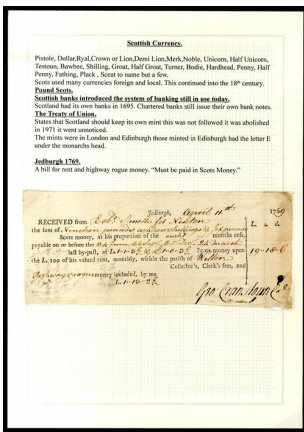 Scottish Currency.
Pistole, Dollar,Ryal,Crown or Lion,Demi Lion,Merk,Noble, Unicorn, Half Unicorn,
Testoun, Bawbee, Shilling, Groat, Half Groat, Turner, Bodie, Hardhead, Penny, Half
Penny, Fathing, Plack , Sceat to name but a few.
Scots used many currencies foreign and local. This continued into the 18th century.
Pound Scots.
Scottish banks introduced the system of banking still in use today.
Scotland had its own banks in 1695. Chartered banks still issue their own bank notes.
The Treaty of Union.
States that Scotland should keep its own mint this was not followed it was abolished
in 1971 it went unnoticed.
The mints were in London and Edinburgh those minted in Edinburgh had the letter E
under the monarchs head.
Jedburgh 1769.
A bill for rent and highway rogue money. “Must be paid in Scots Money.”
Jedburgh, April 11th 1769
RECEIVED from Robt
the sum of Nineteen pounds shillings & six pence
Scots money, as his proportion of the eight months cess,
payable on or before the 24 June 24 March
last by-past, at Scots money upon 19-18-6
the L. 100 of his valued rent, monthly, within the parish of
Collector's, Clerk's fees, and
money included, by me
Geo. Cranstoun